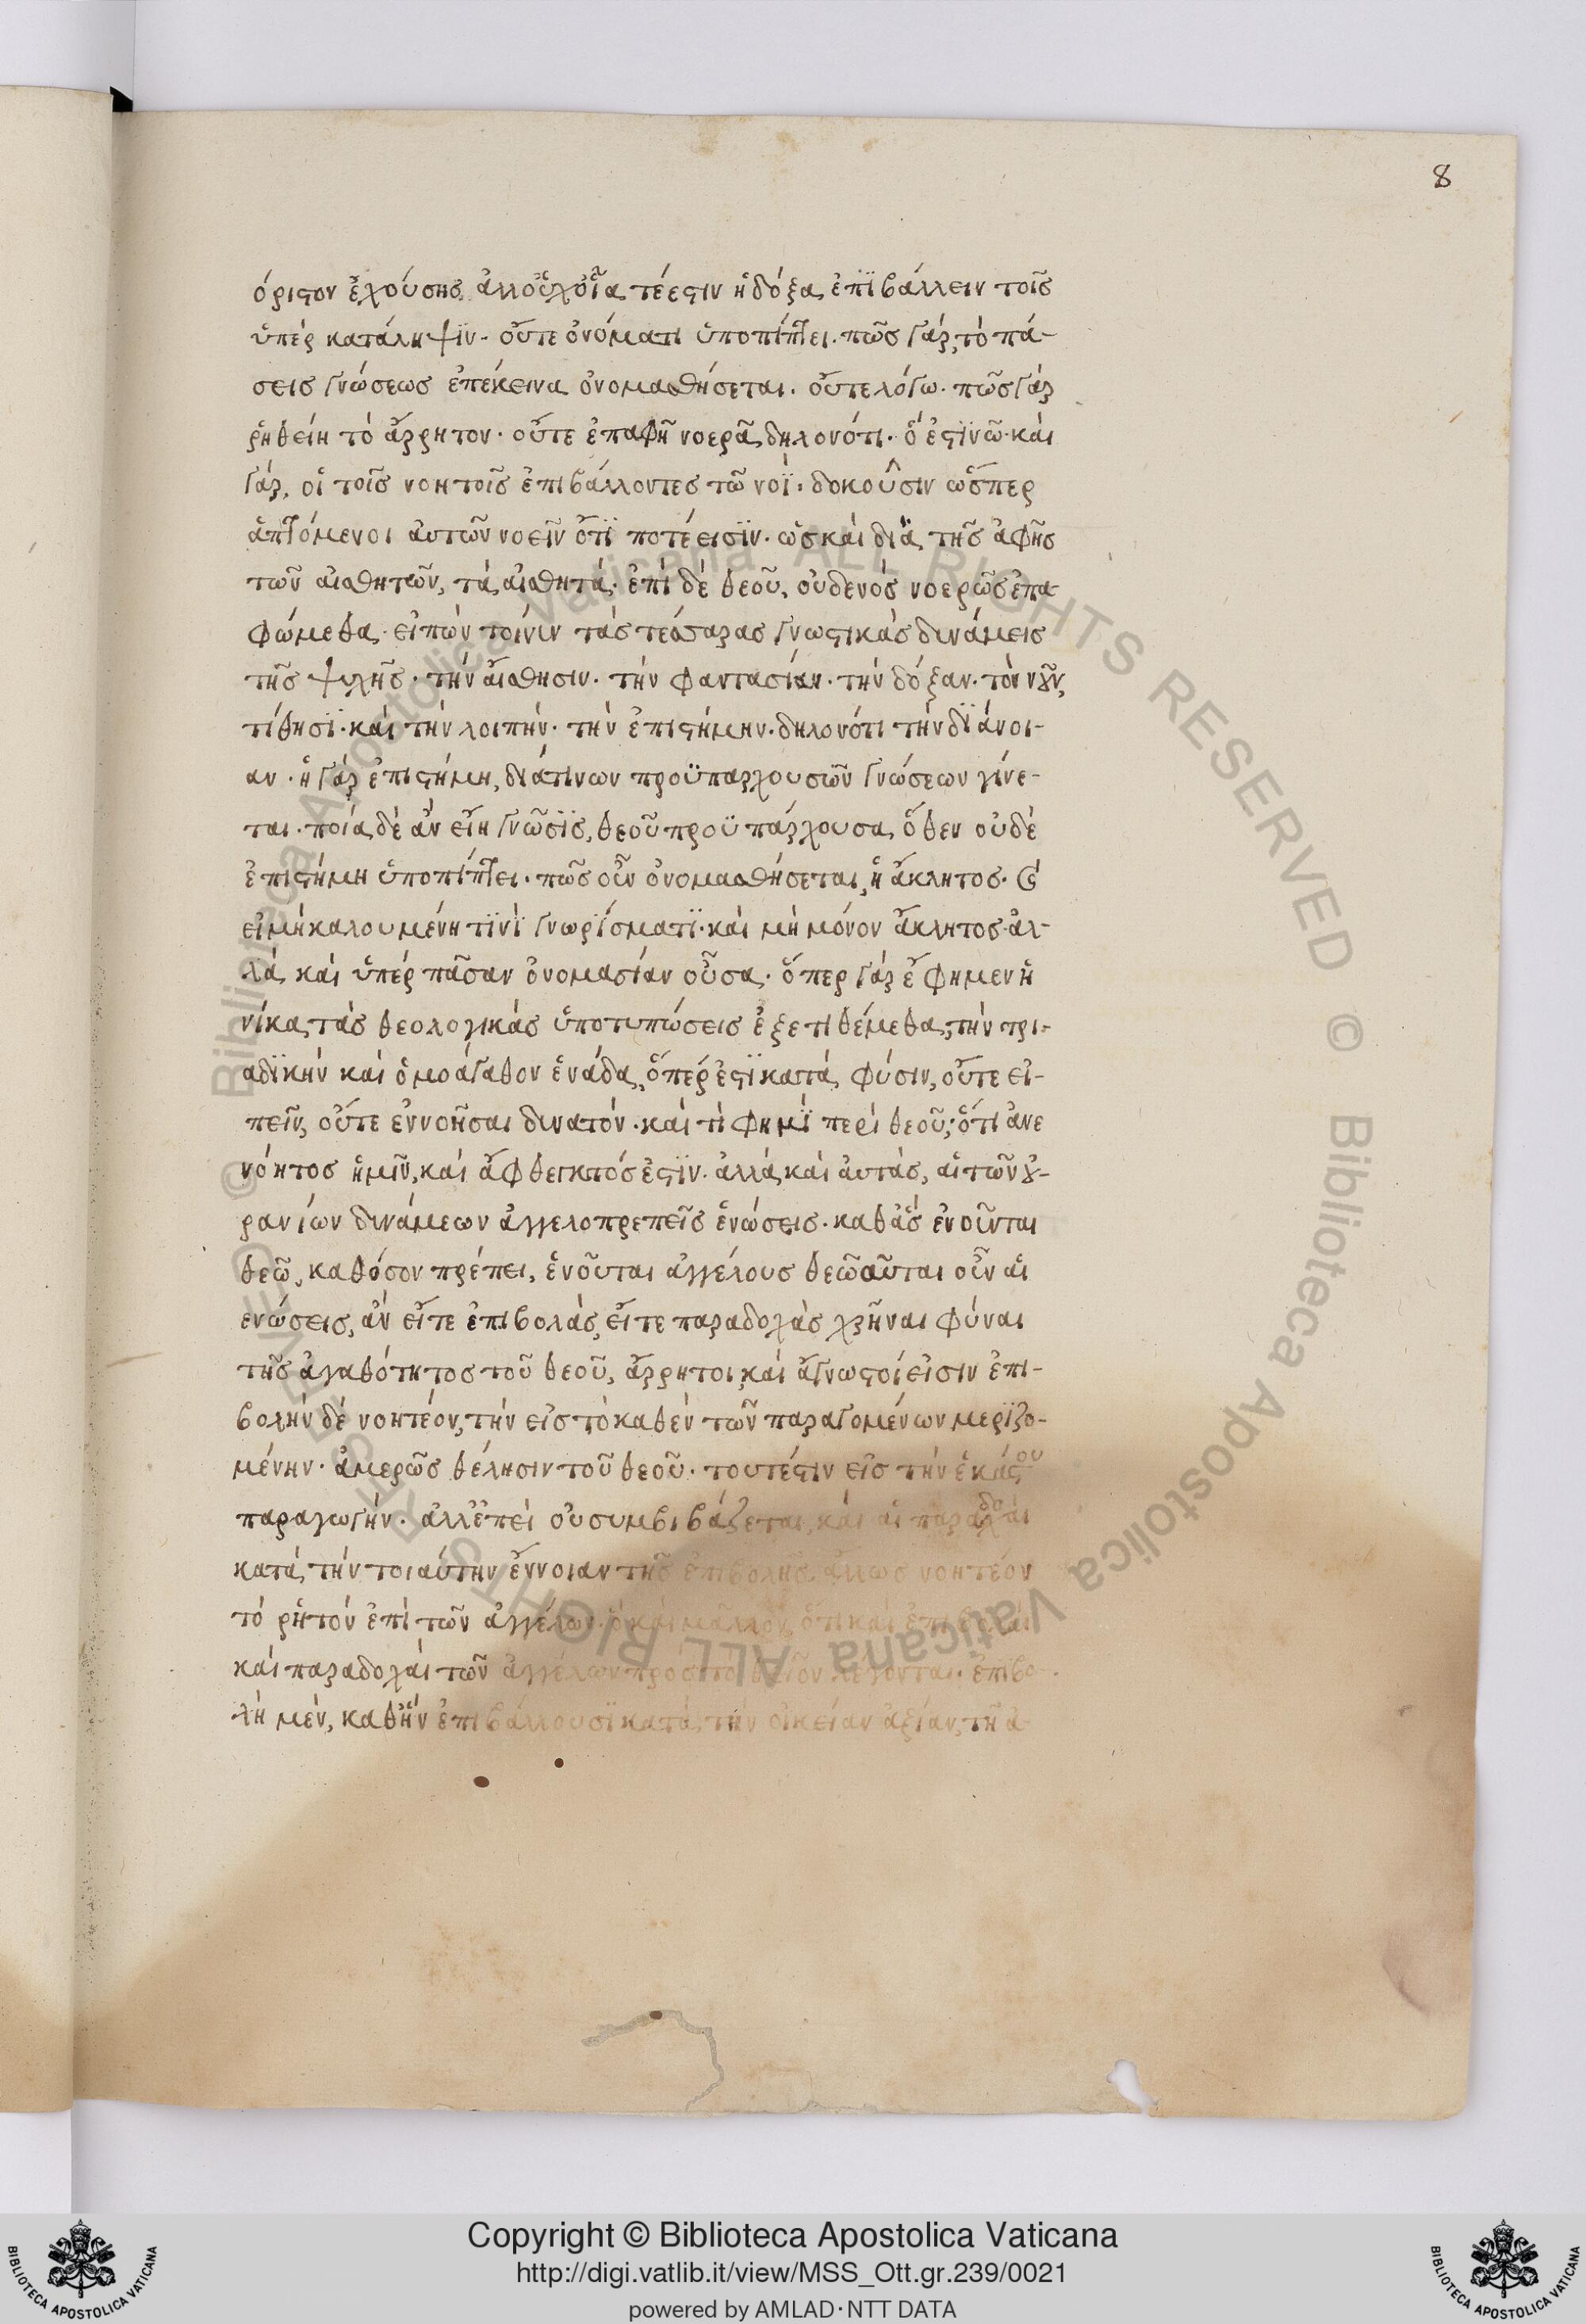 8
όριστον ἐχούσης, ἀλλοὐχοἷα τέεστιν ἡ δόξα, ἐπϊβάλλειν τοῖς
ὑπὲρ κατάληψϊν. οὔτε ὀνόματι ὑποπίπτει. πῶς γάρ, τὸ πά-
σεις γνώσεως ἐπέκεινα ὀνομασθήσεται. οὔτελόγω. πῶςγάρ
ῥηθείη τὸ ἄρρητον. οὔτε ἐπαφῆ νοερᾶ, δηλονότι. ὅ ἐστϊνῶ. καὶ
γάρ, οἱ τοῖς νοητοῖς ἐπιβάλλοντες τῶ νοΐ. δοκοῦσιν ὥσπερ
ἁπτόμενοι ἀυτῶν νοεῖν ὅτϊ ποτέ εισϊν. ὡς καὶ διὰ τῆς ἀφῆς
τῶν αἰσθητῶν, τὰ αἰσθητά. ἐπὶ δὲ θεοῦ, οὐδενὸς νοερῶς ἐπα
φώμεθα. εἰπὼν τοίνυν τὰς τέσσαρας γνωστικὰς δυνάμεις
τῆς ψυχῆς. τὴν αἴσθησιν. τὴν φαντασίαν. τὴν δόξαν. τὸν νοῦν,
τίθησϊ. καὶ τὴν λοιπήν. τὴν ἐπιστήμην. δηλονότι τὴν δϊάνοι-
αν. ἡ γὰρ ἐπιστήμη, διάτινων προϋπαρχουσῶν γνώσεων γίνε-
ται. ποία δὲ ἂν εἴη γνῶσϊς, θεοῦ προϋπάρχουσα, ὅθεν οὐδὲ
ἐπιστήμη ὑποπίπτει. πῶς οὖν ὀνομασθήσεται, ἡ ἄκλητος. καὶ
εἰμὴκαλουμένη τϊνϊ γνωρϊσματϊ. καὶ μὴ μόνον ἄκλητος. ἀλ-
λὰ καὶ ὑπὲρ πᾶσαν ὀνομασίαν οὖσα. ὅπερ γὰρ ἔφημεν ἡ
νίκα τὰς θεολογικὰς ὑποτυπώσεις ἐξετιθέμεθα, τὴν τρι-
αδϊκὴν καὶ ὁμοάγαθον ἑνάδα, ὅπέρ ἐστϊ κατὰ φύσιν, οὔτε εἰ-
πεῖν, οὔτε ἐννοῆσαι δυνατόν. καὶ τί φημϊ περὶ θεοῦ; ὅτι ἀνε
νόητος ἡμῖν, καὶ ἄφθεγκτός ἐστϊν. ἀλλὰ καὶ ἀυτὰς, αἱ τῶν οὐ-
ρανίων δυνάμεων ἀγγελοπρεπεῖς ἑνώσεις. καθἃς ἑνοῦνται
θεῶ, καθόσον πρέπει, ἑνοῦται ἀγγέλους θεῶ αὗται οὖν αἱ
ενώσεις, ἃν εἴτε ἐπιβολὰς, εἴτε παραδοχὰς χρῆναι φύναι
τῆς ἀγαθότητος τοῦ θεοῦ, ἄρρητοι, καὶ ἄγνωστοί εἰσιν ἐπι-
βολὴν δὲ νοητέον, τὴν εἰς τὸ καθὲν τῶν παραγομένων μερϊζο-
μένην. ἀμερῶς θέλησιν τοῦ θεοῦ. τουτέστιν εἰς τὴν ἑκάστου
παραγωγήν. ἀλλἐπεὶ οὐσυμβιβάζεται, καὶ αἱ παραδοχαὶ
κατὰ τὴν τοιαύτην ἔννοιαν τῆς ἐπιβολῆς, ἄλλως νοητέον
τὸ ῥητὸν ἐπὶ τῶν ἀγγέλων. ὃ καὶ μᾶλλον, ὅτι καὶ ἐπιβολαὶ
καὶ παραδοχαὶ τῶν ἀγγέλων πρὸς τὸ θεῖον λέγονται. ἐπιβο-
λὴ μὲν, καθἣν ἐπιβάλλουσϊ κατὰ τὴν οἰκείαν ἀξίαν, τῆ ἀ-
© Biblioteca Apostolica Vaticana ALL RIGHTS RESERVED © Biblioteca Apostolica Vaticana ALL RIGHTS RESERVED
Copyright © Biblioteca Apostolica Vaticana
http://digi.vatlib.it/view/MSS_Ott.gr.239/0021
powered by AMLAD·NTT DATA
BIBLIOTECA APOSTOLICA VATICANA
BIBLIOTECA APOSTOLICA VATICANA